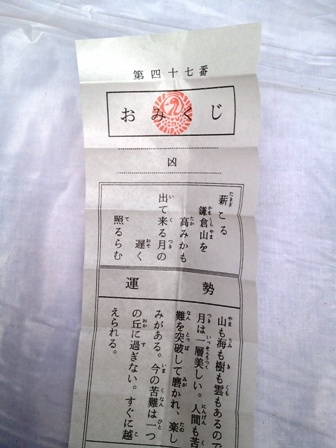 第四十七番
おみくじ
凶
薪こる
鎌倉山を
高みかも
出て来る月の
遅く
照るらむ
運勢
山も海も樹も雲もあるので
月は一層美しい。人間も苦
難を突破して磨かれ、楽し
みがある。今の苦難は一つ
の丘に過ぎない。すぐに越
えられる。